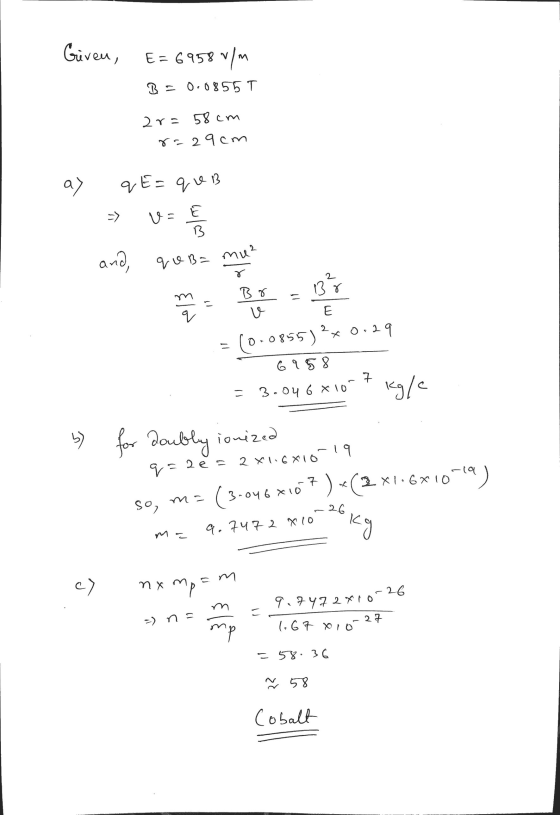 Given, E = 6958 V/m
B = 0.0855 T
2r = 58 cm
r = 29 cm
a) qE = qvB
⇒ v = E/B
and, qvB = mv²/r
m/q = Br/v = B²r/E
= (0.0855)² × 0.29 / 6958
= 3.046 × 10⁻⁷ kg/c
b) for doubly ionized
q = 2e = 2 × 1.6 × 10⁻¹⁹
so, m = (3.046 × 10⁻⁷) × (2 × 1.6 × 10⁻¹⁹)
m = 9.7472 × 10⁻²⁶ kg
c) n × mp = m
⇒ n = m/mp = 9.7472 × 10⁻²⁶ / 1.67 × 10⁻²⁷
= 58.36
≈ 58
Cobalt